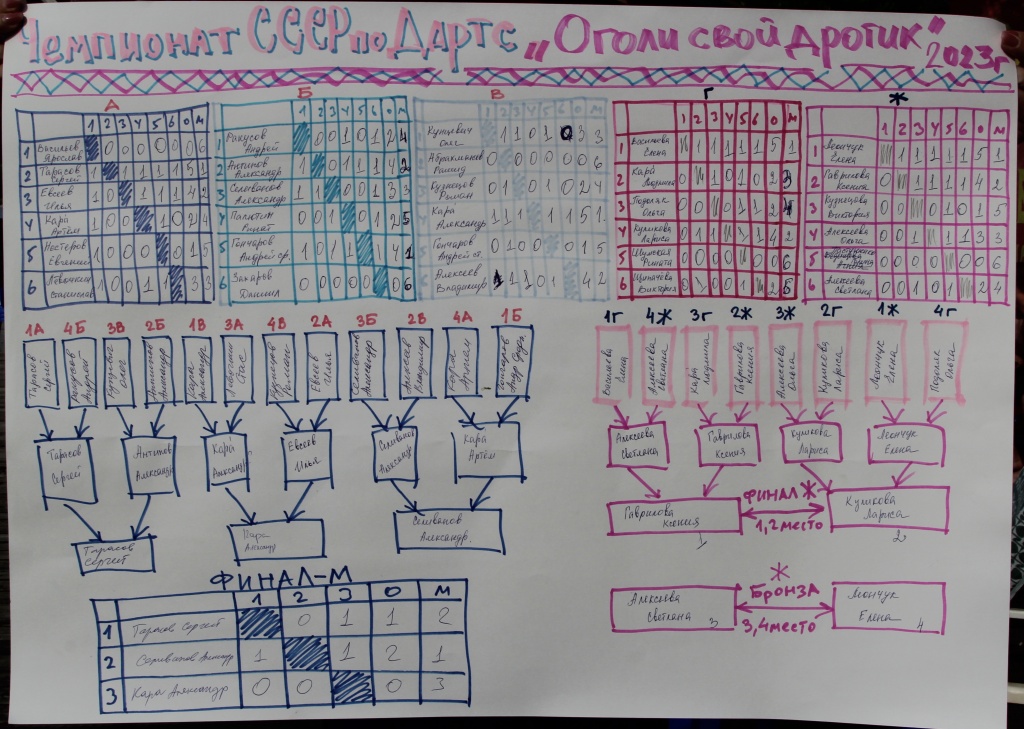 Чемпионат СССР по Дартс „Оголи свой дротик" 2023г
А Б В Г Ж
1 2 3 4 5 6 О М
1 Васильев Ярослав 0 0 0 0 0 0 6
2 Тарасов Сергей 1 1 1 1 1 5 1
3 Евсеев Илья 1 0 1 1 1 4 2
4 Кара Артём 1 0 0 1 0 2 4
5 Нестеров Евгений 1 0 0 0 0 1 5
6 Левочкин Станислав 1 0 0 1 1 3 3
1 2 3 4 5 6 О М
1 Ракусов Андрей 0 0 1 0 1 2 4
2 Антипов Александр 1 0 1 1 1 4 2
3 Селиванов Александр 1 1 0 0 1 3 3
4 Ринат 0 0 1 0 1 2 5
5 Гончаров Андрей 1 0 1 1 1 4 1
6 Захаров Даниил 0 0 0 0 0 0 6
1 2 3 4 5 6 О М
Кунцевич Олег 1 1 0 1 0 3 3
Абрахманов Рашид 0 0 0 0 0 0 6
Кузнецов Роман 0 1 0 1 0 2 4
Кара Александр 1 1 1 1 1 5 1
Гончаров Андрей 0 1 0 0 0 1 5
Алексеев Владимир 1 1 1 0 1 4 2
1 2 3 4 5 6 О М
1 Васильева Елена 1 1 1 1 1 5 1
2 Кара Людмила 0 1 0 1 0 2 3
3 Подоляк Ольга 0 0 0 1 1 2 4
4 Куликова Лариса 0 1 1 1 1 4 2
5 Рината 0 0 0 0 0 0 6
6 Виктория 0 1 0 0 1 2 5
1 2 3 4 5 6 О М
1 Леончук Елена 1 1 1 1 1 5 1
2 Гаврилова Ксения 0 1 1 1 1 4 2
3 Кузнецова Виктория 0 0 0 1 0 1 5
4 Алексеева Ольга 0 0 1 1 1 3 3
5 0 0 0 0 0 0 6
6 Алексеева Светлана 0 0 1 0 1 2 4
1А 4Б 3В 2Б 1В 3А 4В 2А 3Б 2В 4А 1Б
Тарасов Сергей
Ракусов Андрей
Кунцевич Олег
Антипов Александр
Кара Александр
Левочкин Стас
Кузнецов Роман
Евсеев Илья
Селиванов Александр
Алексеев Владимир
Кара Артём
Гончаров Андрей
1Г 4Ж 3Г 2Ж 3Ж 2Г 1Ж 4Г
Васильева Елена
Алексеева Светлана
Кара Людмила
Гаврилова Ксения
Алексеева Ольга
Куликова Лариса
Леончук Елена
Подоляк Ольга
Тарасов Сергей
Антипов Александр
Кара Александр
Евсеев Илья
Селиванов Александр
Кара Артём
Алексеева Светлана
Гаврилова Ксения
Куликова Лариса
Леончук Елена
Тарасов Сергей
Кара Александр
Селиванов Александр.
Гаврилова Ксения 1
ФИНАЛ Ж
1,2 место
Куликова Лариса 2
ФИНАЛ-М
1 2 3 О М
1 Тарасов Сергей 0 1 1 2
2 Селиванов Александр 1 1 2 1
3 Кара Александр 0 0 0 3
Ж
Алексеева Светлана 3
БРОНЗА
3,4 место
Леончук Елена 4